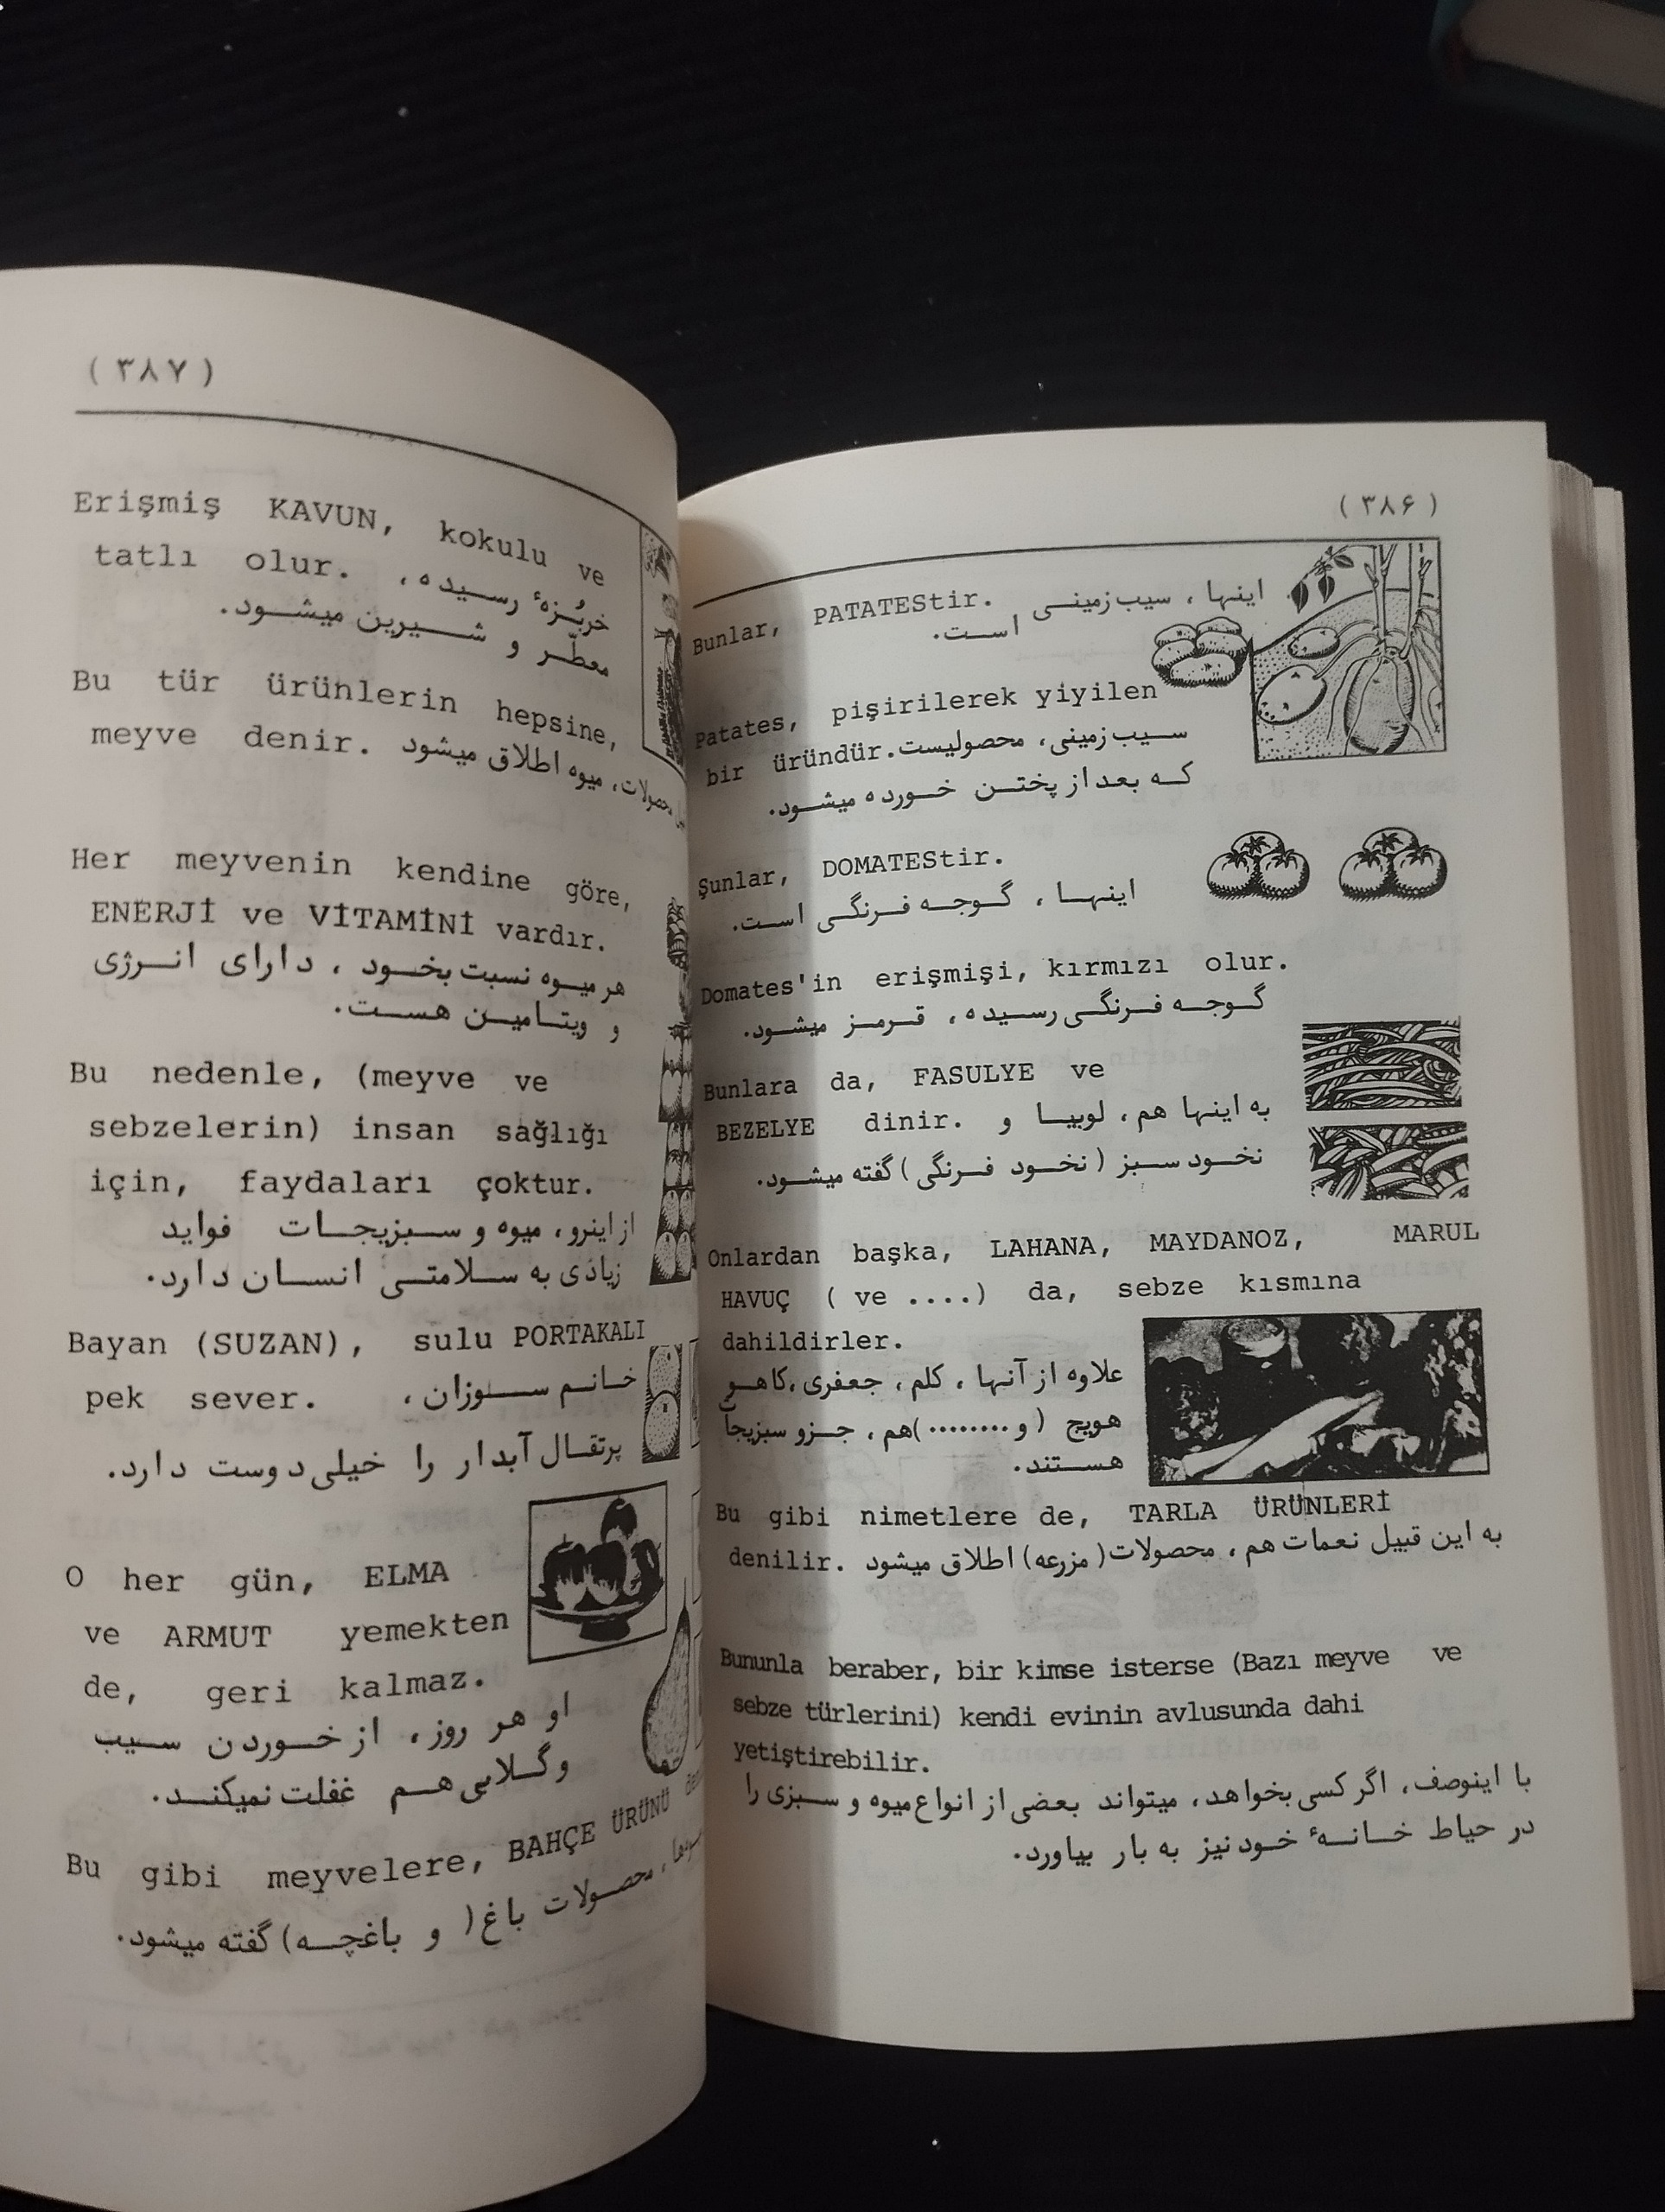 ( ۳۸۶ )
Bunlar, PATATEStir. اینها ، سیب‌زمینی
است.
Patates, pişirilerek yiyilen
bir üründür. سیب‌زمینی، محصولیست
که بعد از پختن خورده میشود.
Şunlar, DOMATEStir.
اینها ، گوجه فرنگی است.
Domates'in erişmişi, kırmızı olur.
گوجه فرنگی رسیده ، قرمز میشود.
Bunlara da, FASULYE ve
BEZELYE dinir. به اینها هم ، لوبیا و
نخود سبز ( نخود فرنگی ) گفته میشود.
Onlardan başka, LAHANA, MAYDANOZ, MARUL
HAVUÇ ( ve ....) da, sebze kısmına
dahildirler.
علاوه از آنها ، کلم ، جعفری ،کاهو
هویج ( و ........)هم ، جزو سبزیجات
هستند.
Bu gibi nimetlere de, TARLA ÜRÜNLERİ
denilir. به این قبیل نعمات هم ، محصولات( مزرعه) اطلاق میشود
Bununla beraber, bir kimse isterse (Bazı meyve ve
sebze türlerini) kendi evinin avlusunda dahi
yetiştirebilir.
با اینوصف، اگر کسی بخواهد، میتواند بعضی از انواع میوه و سبزی را
در حیاط خانهٔ خود نیز به بار بیاورد.
( ۳۸۷ )
Erişmiş KAVUN, kokulu ve
tatlı olur. خربُزهٔ رسیده ،
معطّر و شیرین میشود.
Bu tür ürünlerin hepsine,
meyve denir. محصولات، میوه اطلاق میشود
Her meyvenin kendine göre,
ENERJİ ve VİTAMİNİ vardır.
هر میوه نسبت بخود ، دارای انرژی
و ویتامین هست.
Bu nedenle, (meyve ve
sebzelerin) insan sağlığı
için, faydaları çoktur.
از اینرو ، میوه و سبزیجات فواید
زیادی به سلامتی انسان دارد.
Bayan (SUZAN), sulu PORTAKALI
pek sever. خانم سوزان ،
پرتقال آبدار را خیلی دوست دارد.
O her gün, ELMA
ve ARMUT yemekten
de, geri kalmaz.
او هر روز ، از خوردن سیب
و گلابی هم غفلت نمیکند.
Bu gibi meyvelere, BAHÇE ÜRÜNÜ
محصولات باغ( و باغچه) گفته میشود.